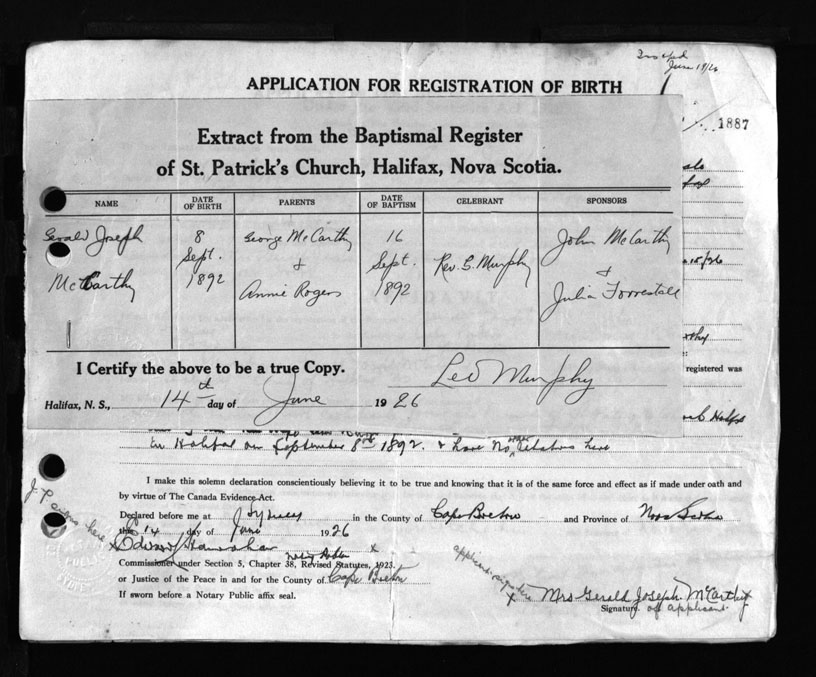 June 19/26
APPLICATION FOR REGISTRATION OF BIRTH
1887
Extract from the Baptismal Register
of St. Patrick's Church, Halifax, Nova Scotia.
NAME DATE OF BIRTH PARENTS DATE OF BAPTISM CELEBRANT SPONSORS
Gerald Joseph McCarthy
8 Sept. 1892
George McCarthy & Annie Rogers
16 Sept. 1892
Rev. G. Murphy
John McCarthy & Julia Forrestall
I Certify the above to be a true Copy.
Leo Murphy
Halifax, N. S., 14th day of June 1926
registered was
in Halifax on September 8th 1892. & have no relatives here
I make this solemn declaration conscientiously believing it to be true and knowing that it is of the same force and effect as if made under oath and
by virtue of The Canada Evidence Act.
Declared before me at Sydney in the County of Cape Breton and Province of Nova Scotia
this 14 day of June 1926
J P signs here x
Commissioner under Section 5, Chapter 38, Revised Statutes, 1923.
or Justice of the Peace in and for the County of Cape Breton
If sworn before a Notary Public affix seal.
applicant signs here x
Mrs Gerald Joseph McCarthy
Signature of applicant